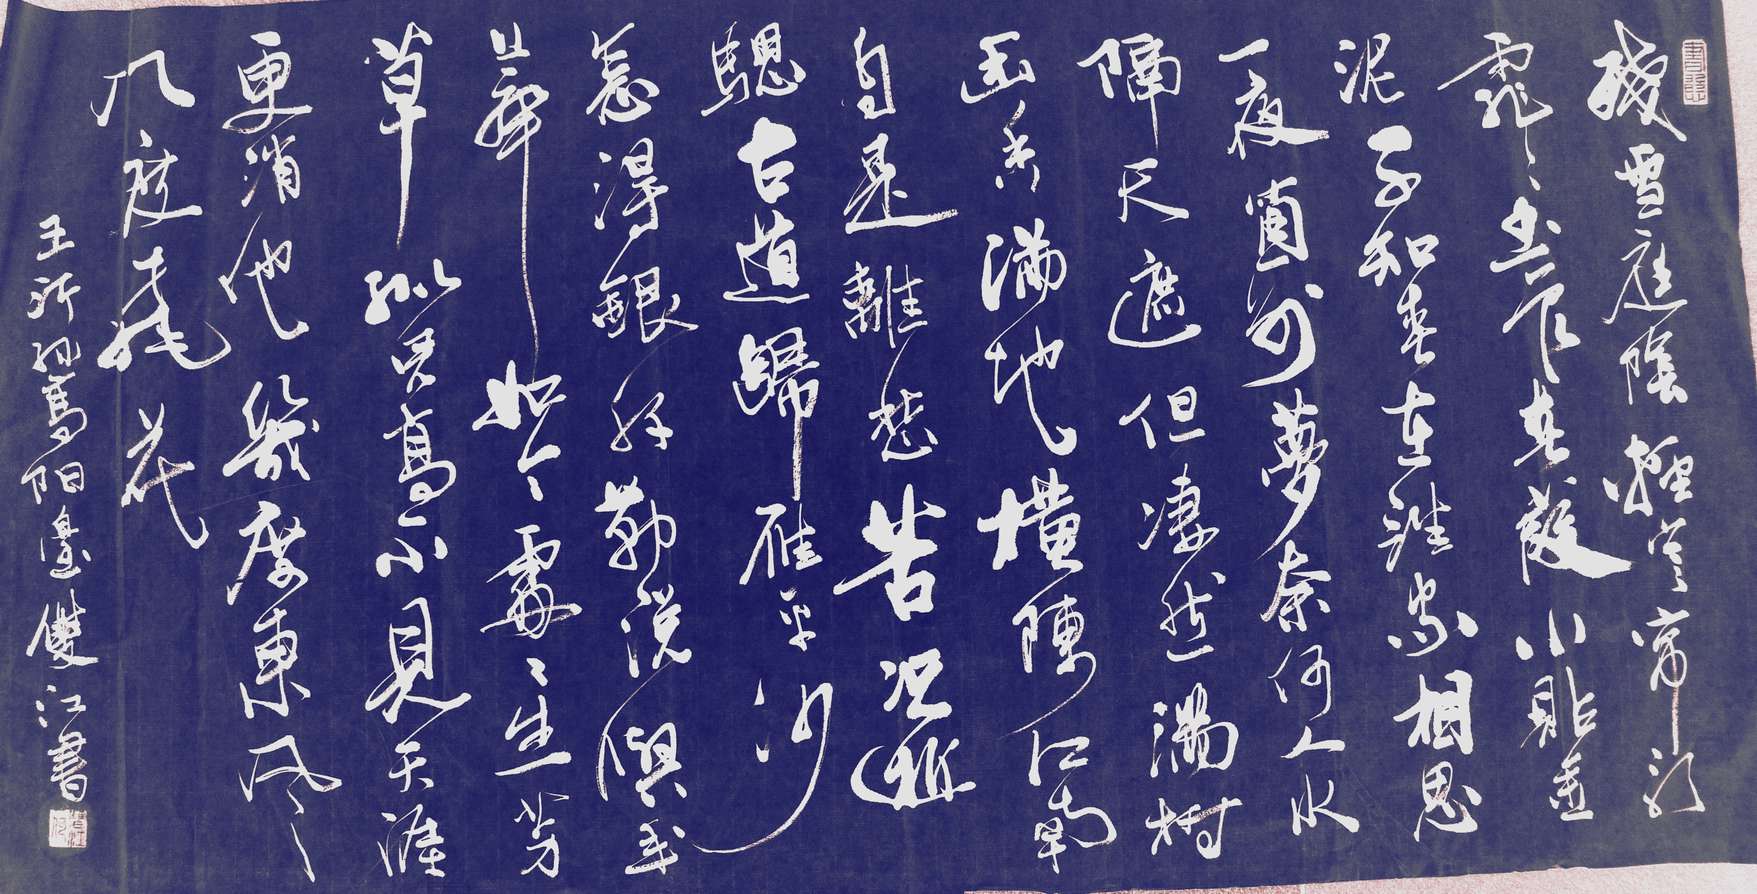 殘雪庭陰輕寒簾影
霏霏玉管春葭小貼金
泥不知春在誰家相思
一夜窗前夢奈何人水
隔天遮但凄然滿樹
幽香滿地橫陳江南
自是離愁苦況遊
驄古道歸雁平沙
怎得銀箋勤說與年
華如今處處生芳
草縱憑高不見天涯
更消他幾度東風
几度飛花
王沂孫高陽臺 雙江書